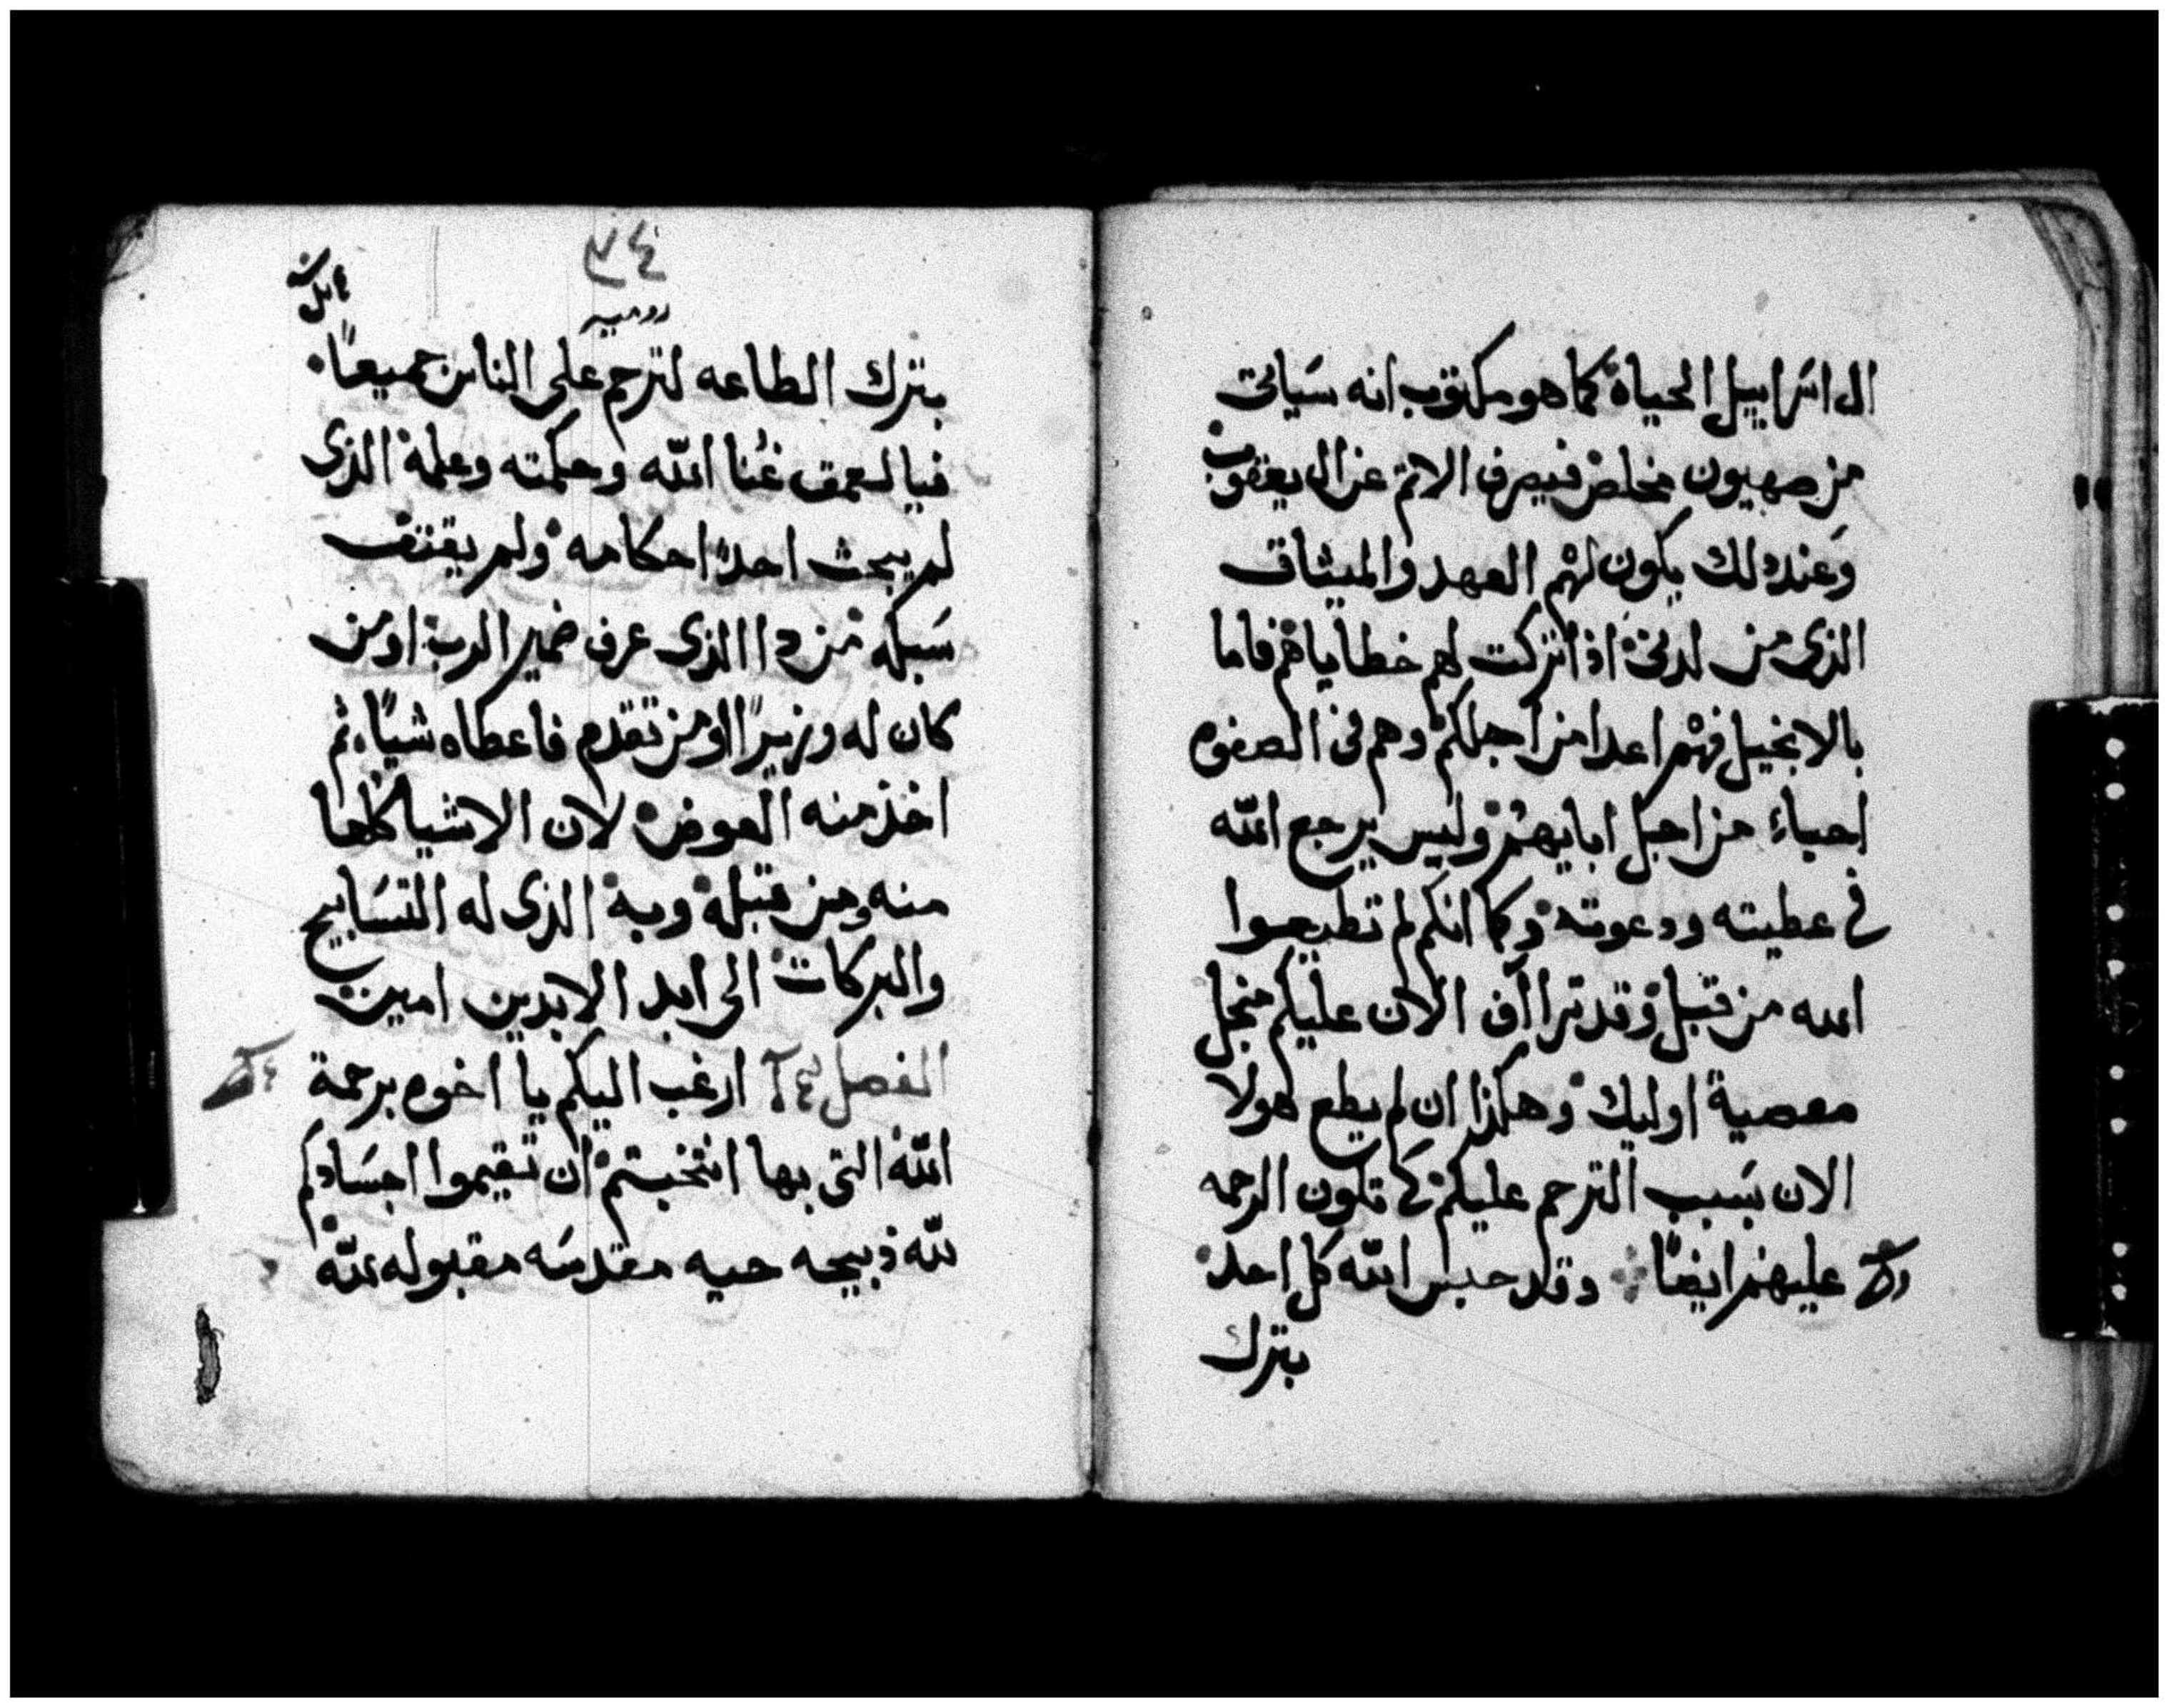 ال اسراييل الحياة كما هو مكتوب انه سياتى
من صهيون مخلص فيصرف الاثم عن ال يعقوب
وعند ذلك يكون لهم العهد والميثاق
الذى من لدنى اذا تركت لهم خطاياهم فاما
بالانجيل فهم اعدا من اجلكم وهم فى الصفوه
احباء من اجل ابايهم وليس يرجع الله
فى عطيته ودعوته وكما انكم لم تطيعوا
الله من قبل وقد تراأف الان عليكم منجل
معصية اوليك وهكذا ان لم يطع هولا
الان بسبب الترحم عليكم كى تكون الرحمه
عليهم ايضًا وقد حبس الله كل احد
بترك
٣٤
روميه
بترك الطاعه لترحم على الناس جميعًا
فيا لعمق غنا الله وحكمته وعلمه الذى
لم يبحث احدًا احكامه ولم يقتف
سبله من دا الذى عرف ضمير الرب او من
كان له وزيرًا او من تقدم فاعطاه شيًا ثم
اخذ منه العوض لان الاشيا كلها
منه ومن قبله وبه الذى له التسابيح
والبركات الى ابد الابدين امين
الفصل ارغب اليكم يا اخوه برحمة
الله التى بها انتخبتم ان تقيموا اجسادكم
لله ذبيحه حيه مقدسه مقبوله لله